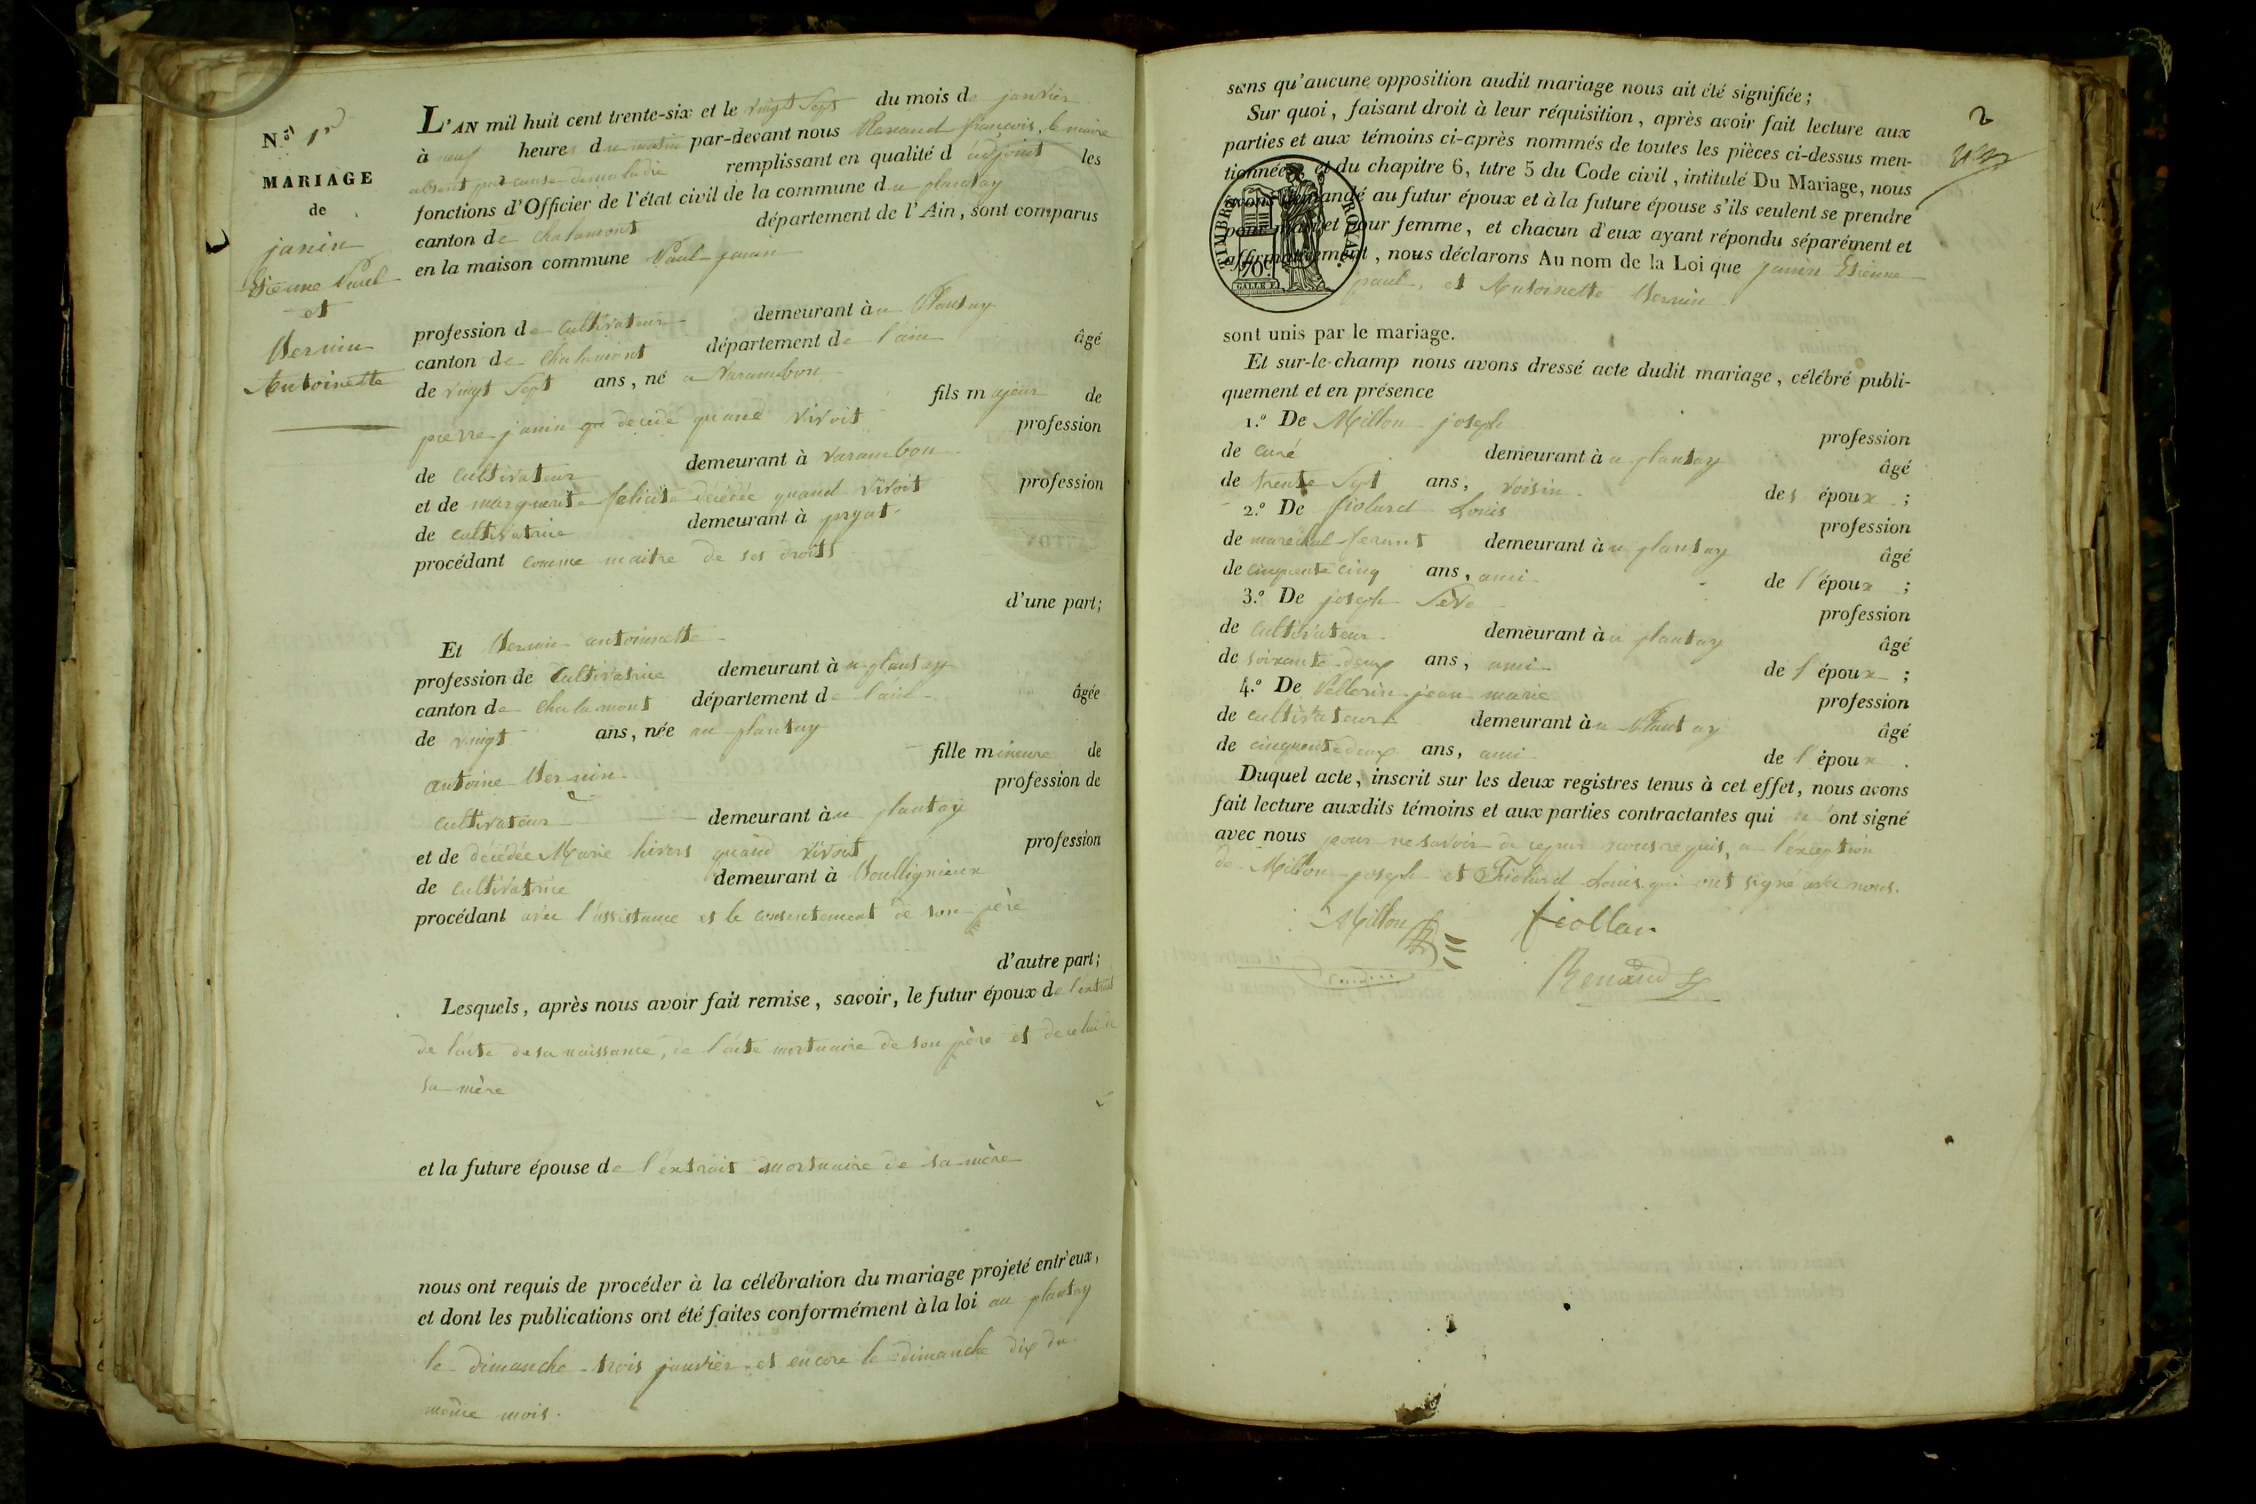 N.º 1er
MARIAGE
de
janin
Etienne Paul
et
Vernin
Antoinette
L'AN mil huit cent trente-six et le vingt sept du mois de janvier
à neuf heures du matin par-devant nous Renaud françois, le maire
absent pour cause de maladie remplissant en qualité d'adjoint les
fonctions d'Officier de l'état civil de la commune du plantay
canton de chalamont département de l'Ain, sont comparus
en la maison commune Paul janin
profession de cultivateur demeurant à u Plantay
canton de Chalamont département de l'ain âgé
de vingt sept ans, né a Varambon
fils majeur de
pierre janin décédé quand vivoit profession
de cultivateur demeurant à varambon
et de marguerite felicité décédée quand vivoit profession
de cultivatrice demeurant à pryat
procédant comme maitre de ses droits
d'une part;
Et Vernin antoinette
profession de Cultivatrice demeurant à u plantay
canton de chalamont département de l'ain âgée
de vingt ans, née au plantay
fille mineure de
antoine Vernin profession de
cultivateur demeurant à u plantay
et de décédée Marie hivers quand vivoit profession
de cultivatrice demeurant à Boulligneux
procédant avec l'assistance et le consentement de son père
d'autre part;
Lesquels, après nous avoir fait remise, savoir, le futur époux de l'extrait
de l'acte de sa naissance, de l'acte mortuaire de son père et de celui de
sa mère
et la future épouse de l'extrait mortuaire de sa mère
nous ont requis de procéder à la célébration du mariage projeté entr'eux,
et dont les publications ont été faites conformément à la loi au plantay
le dimanche trois janvier et encore le dimanche dix du
même mois.
2
sans qu'aucune opposition audit mariage nous ait été signifiée;
Sur quoi, faisant droit à leur réquisition, après avoir fait lecture aux
parties et aux témoins ci-après nommés de toutes les pièces ci-dessus men-
tionnées, et du chapitre 6, titre 5 du Code civil, intitulé Du Mariage, nous
avons demandé au futur époux et à la future épouse s'ils veulent se prendre
pour mari et pour femme, et chacun d'eux ayant répondu séparément et
affirmativement, nous déclarons Au nom de la Loi que janin Etienne
paul, et Antoinette Vernin
TIMBRE ROYAL.
70c
GALLE F.
sont unis par le mariage.
Et sur-le-champ nous avons dressé acte dudit mariage, célébré publi-
quement et en présence
1.º De Millon joseph profession
de curé demeurant à u plantay âgé
de trente sept ans, voisin des époux ;
2.º De fiolard Louis profession
de marechal ferant demeurant à u plantay âgé
de cinquante cinq ans, ami de l'époux ;
3.º De joseph Sève profession
de cultivateur demeurant à u plantay âgé
de soixante deux ans, ami de l'époux ;
4.º De Pellerin jean marie profession
de cultivateur demeurant à u Plantay âgé
de cinquante deux ans, ami de l'époux .
Duquel acte, inscrit sur les deux registres tenus à cet effet, nous avons
fait lecture auxdits témoins et aux parties contractantes qui n'ont signé
avec nous pour ne savoir de ce requis, a l'exception
de Millon joseph et Fiolard Louis qui ont signé avec nous.
Millon fiollar
Renaud